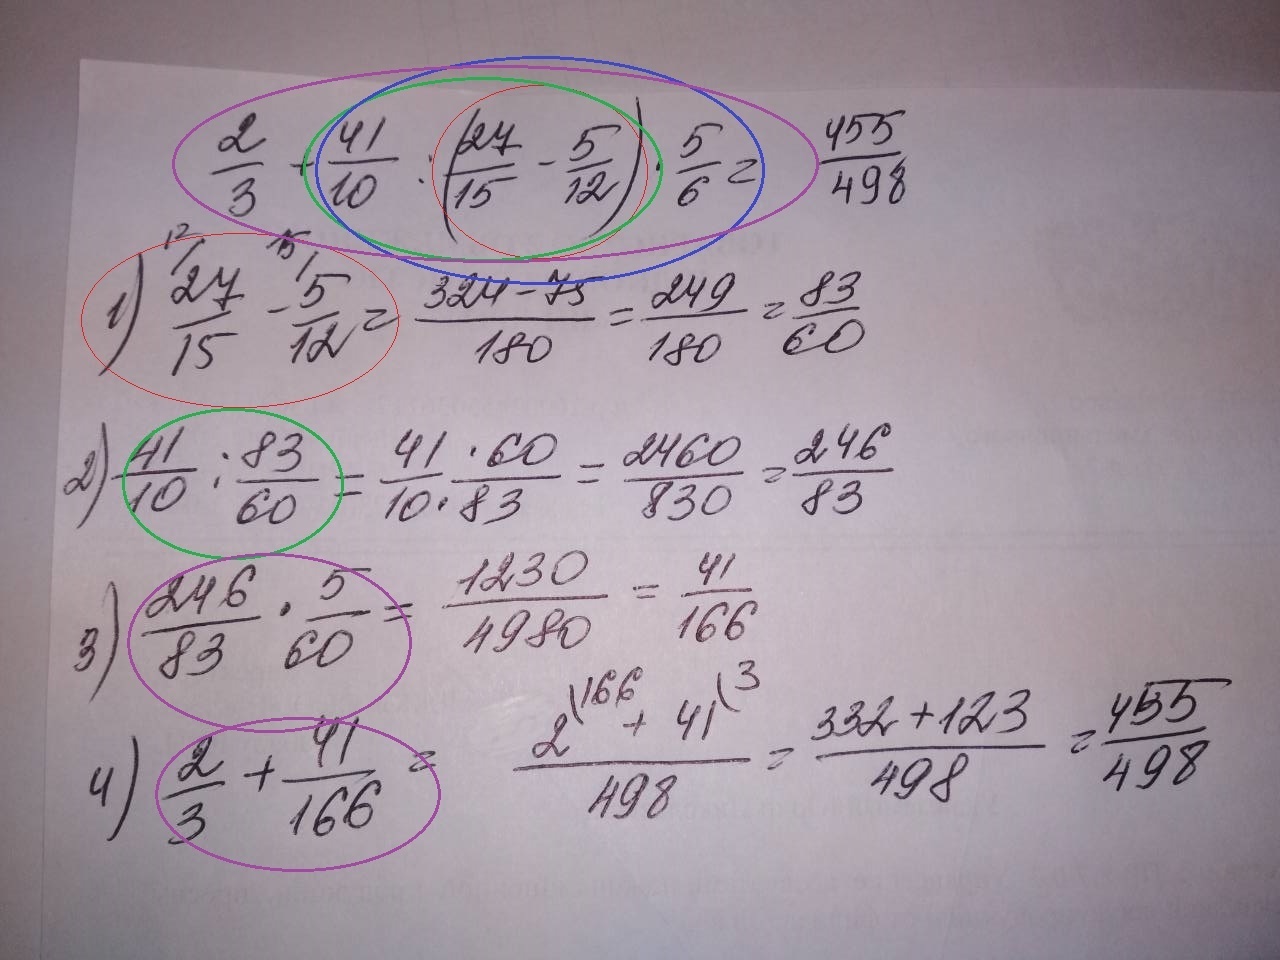 2/3 + 41/10 : (27/15 - 5/12) · 5/6 = 455/498
1) 27/15 - 5/12 = 324-75/180 = 249/180 = 83/60
2) 41/10 : 83/60 = 41·60/10·83 = 2460/830 = 246/83
3) 246/83 · 5/60 = 1230/4980 = 41/166
4) 2/3 + 41/166 = 2\166 + 41\3/498 = 332+123/498 = 455/498